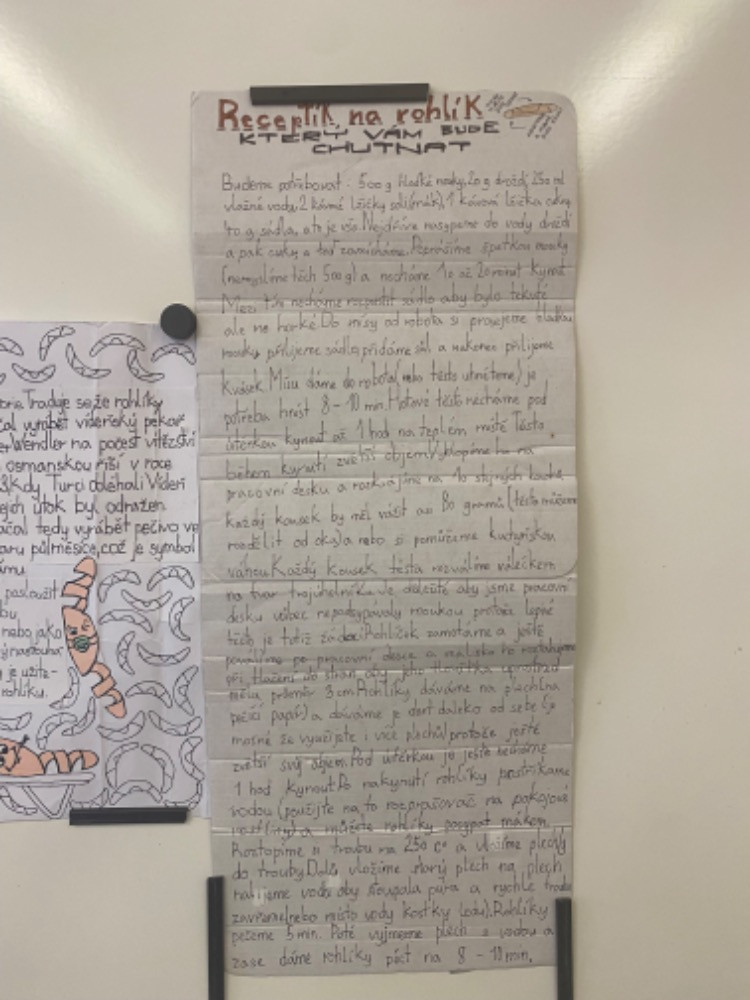 Receptík na rohlík
KTERÝ VÁM BUDE
CHUTNAT
Budeme potřebovat: 500g hladké mouky, 20g droždí, 250 ml
vlažné vody, 2 kávové lžičky soli 1 kávová lžička cukru
40 g sádla, a to je vše. Nejdříve nasypeme do vody droždí
a pak cukr a teď zamícháme. Poprášíme špetkou mouky
(nemyslíme těch 500g) a necháme 10 až 20 minut kynout
Mezi tím necháme rozpustit sádlo aby bylo tekuté
ale ne horké. Do mísy od robota si prosejeme hladkou
mouku přilijeme sádlo, přidáme sůl a nakonec přilijeme
kvásek. Mísu dáme do robota (nebo těsto uhněteme) je
potřeba hníst 8-10 min. Hotové těsto necháme pod
utěrkou kynout až 1 hod na teplém místě. Těsto
během kynutí zvětší objem. Vyklopíme ho na
pracovní desku a rozkrájíme na 10 stejných kousků
každý kousek by měl vážit asi 80 gramů (těsto můžeme
rozdělit od oka) a nebo si pomůžeme kuchyňskou
váhou. Každý kousek těsta rozválíme válečkem
na tvar trojúhelníku. Je důležité aby jsme pracovní
desku vůbec nepodsypávaly moukou protože lepivé
těsto je totiž žádoucí. Rohlíček zamotáme a ještě
povalíme po pracovní desce a
při tlačení do stran, aby jeho tloušťka uprostřed
měla průměr 3 cm. Rohlíky dáváme na plech (na
pečící papír) a dáváme je dost daleko od sebe (je
možné že využijete i více plechů) protože ještě
zvětší svůj objem. Pod utěrkou je ještě necháme
1 hod kynout. Po nakynutí rohlíky postříkáme
vodou (použijte na to rozprašovač na pokojové
rostliny) a můžete rohlíky posypat mákem.
Roztopíme si troubu na 250 c° a vložíme plechy
do trouby. Dolů vložíme starý plech na plech
nalijeme vodu aby stoupala pára a rychle troubu
zavřeme (nebo místo vody kostky ledu). Rohlíky
pečeme 5 min. Poté vyjmeme plech s vodou a
zase dáme rohlíky péct na 8-10 min.
Traduje se, že rohlíky
vyrábět vídeňský pekař
Wendler na počest vítězství
osmanskou říší v roce
kdy Turci obléhali Vídeň
jejich útok byl odražen.
tedy vyrábět pečivo ve
tvaru půlměsíce, což je symbol
posloužit
nebo jako
je užite-
rohlíku.